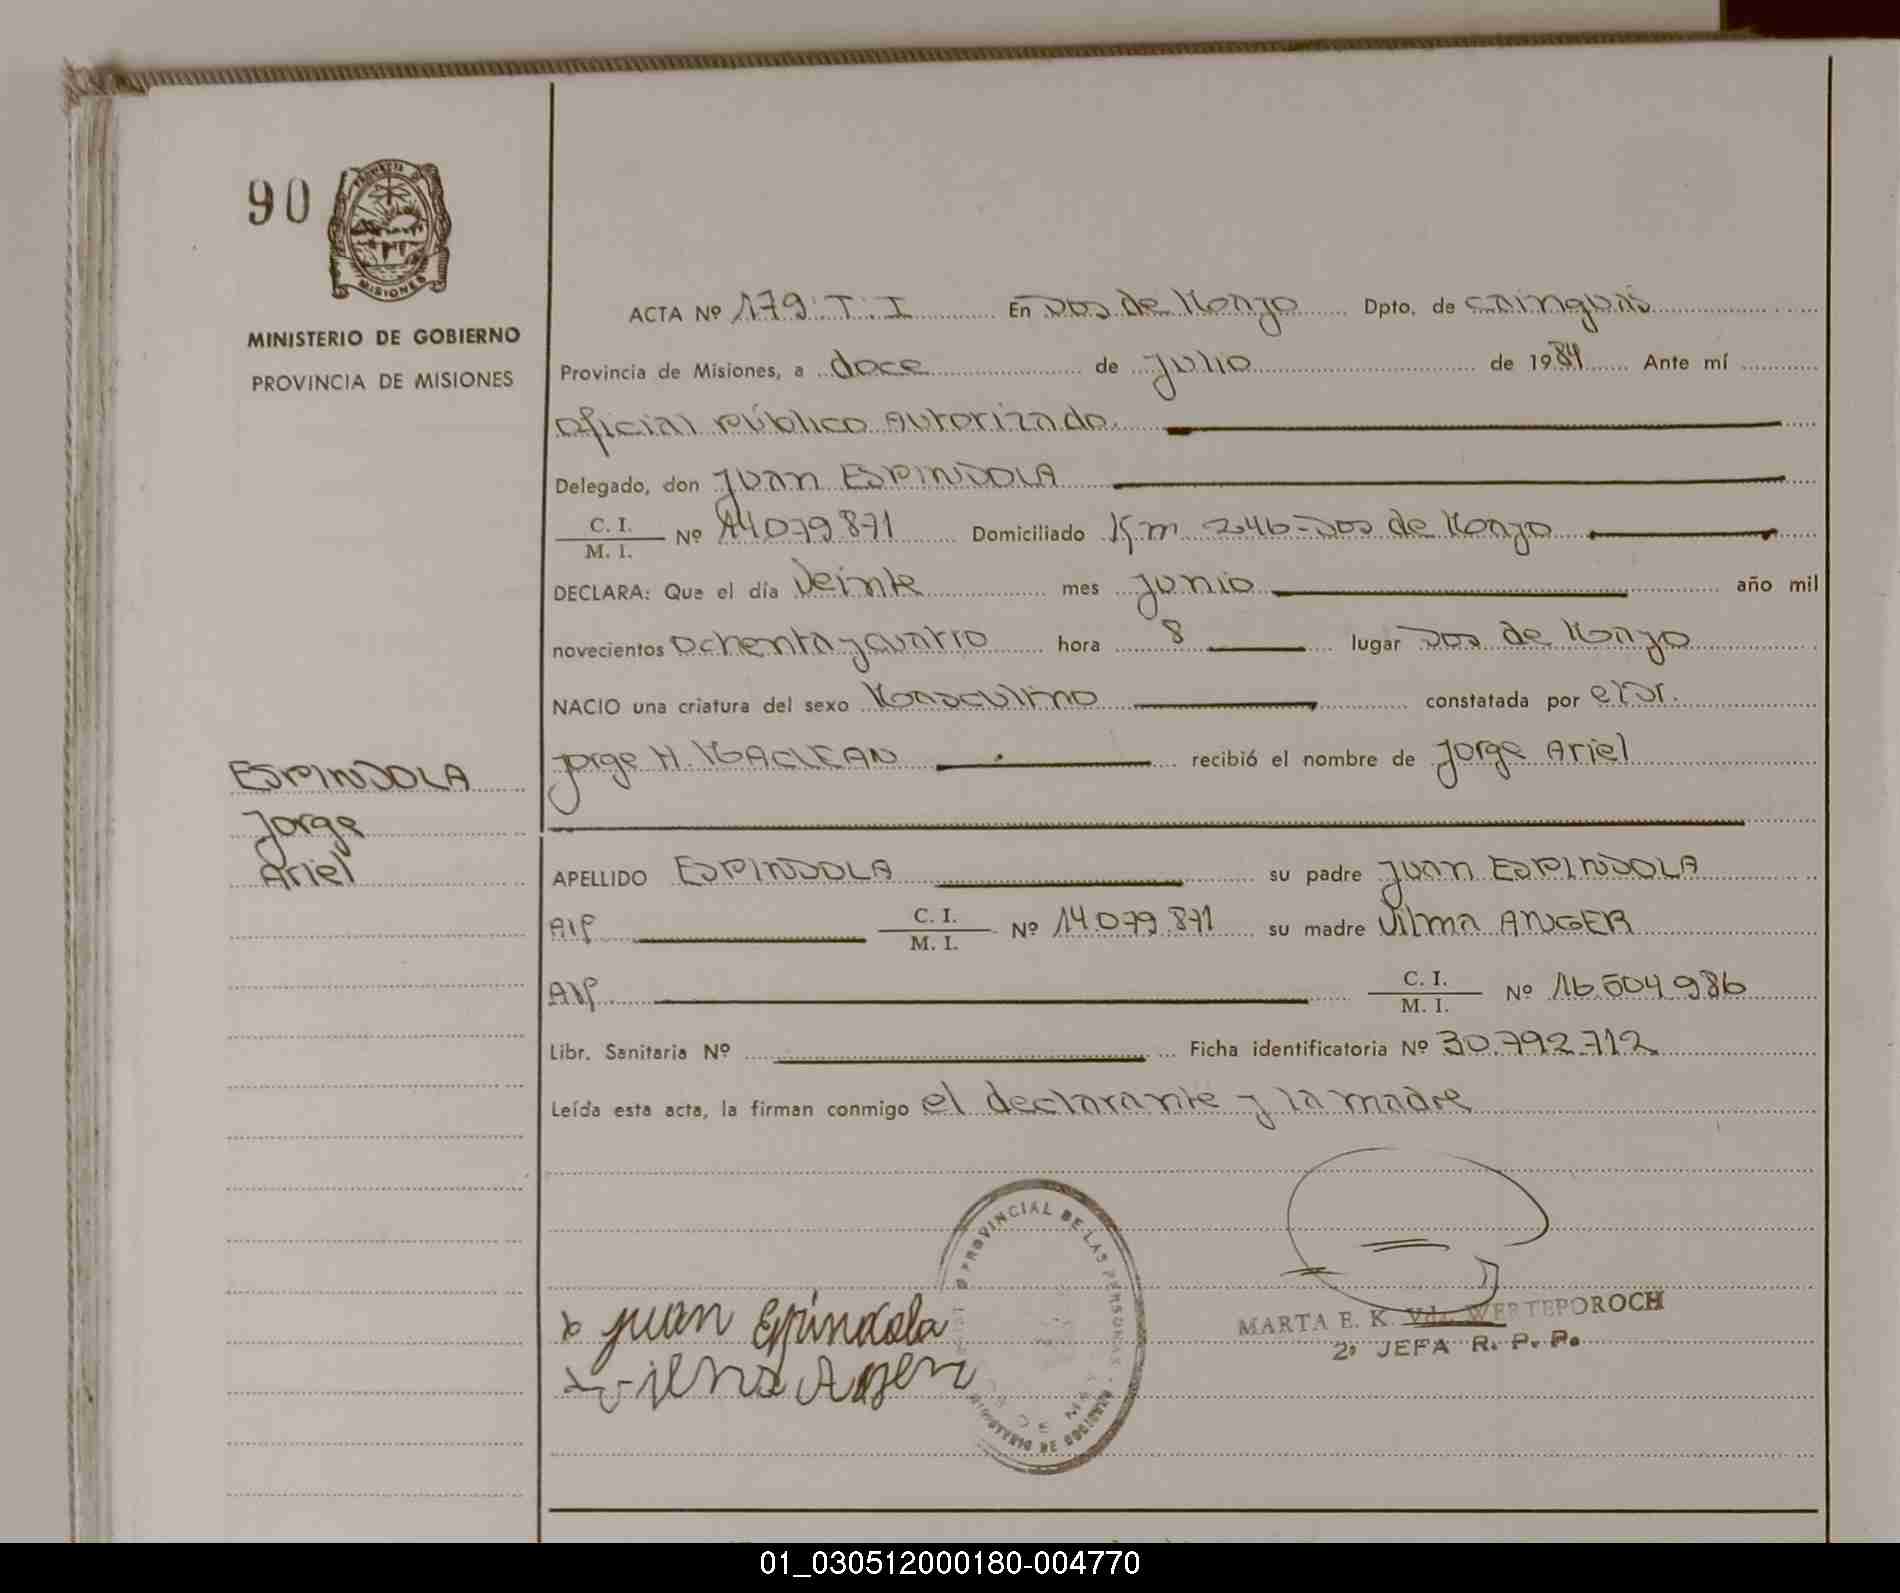 90
PROVINCIA DE
MISIONES
MINISTERIO DE GOBIERNO
PROVINCIA DE MISIONES
ACTA Nº 179. T. I En Dos de Mayo Dpto. de Cainguás
Provincia de Misiones, a doce de julio de 1984 Ante mí
Oficial Público Autorizado.
Delegado, don Juan ESPINDOLA
C. I.
M. I. Nº 14.079.871 Domiciliado Km 246-Dos de Mayo
DECLARA: Que el día Veinte mes junio año mil
novecientos ochenta y cuatro hora 8 lugar Dos de Mayo
NACIO una criatura del sexo Masculino constatada por el Dr.
Jorge H. MACLEAN recibió el nombre de Jorge Ariel
ESPINDOLA
Jorge
Ariel
APELLIDO ESPINDOLA su padre Juan ESPINDOLA
C. I.
M. I. Nº 14.079.871 su madre Vilma ANGER
C. I.
M. I. Nº 16.504.986
Libr. Sanitaria Nº Ficha identificatoria Nº 30.792.712
Leída esta acta, la firman conmigo el declarante y la madre
PROVINCIAL DE LAS PERSONAS
MINISTERIO DE GOBIERNO
x Juan Espindola
MARTA E. K. Vda. WERTEPOROCH
2º JEFA R. P. P.
01_030512000180-004770